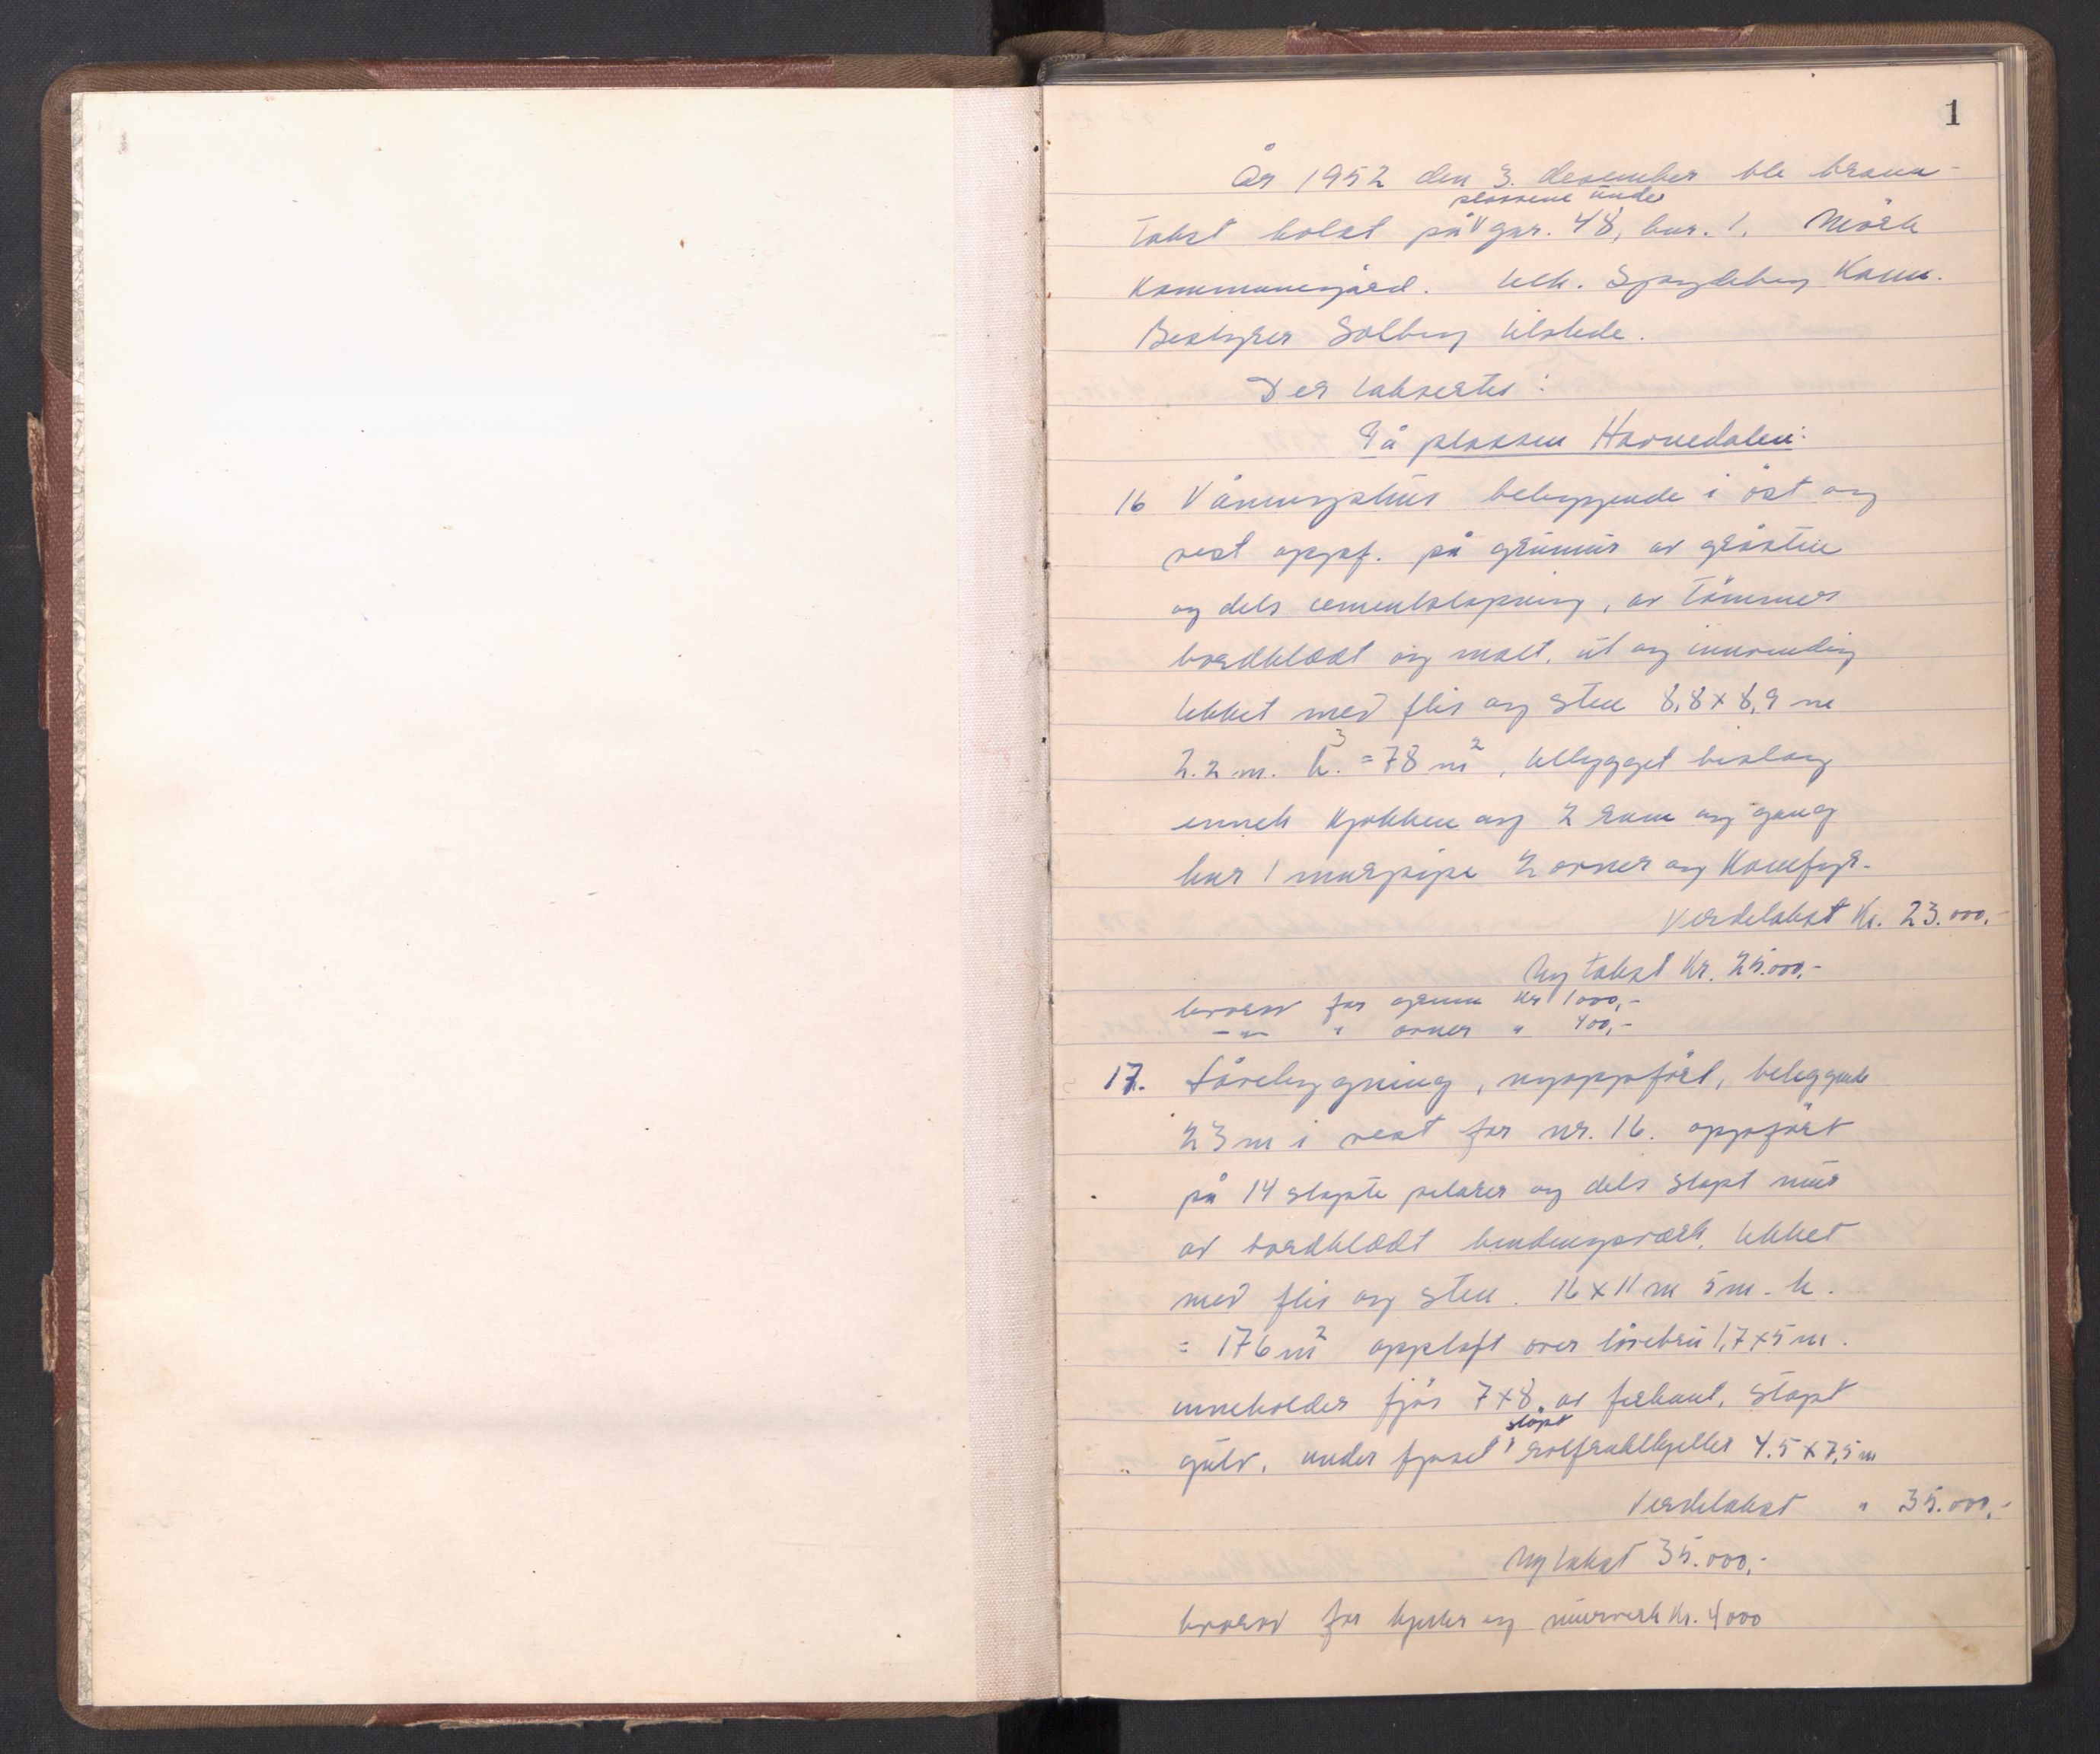 1
År 1952 den 3. desember ble brann-
plassene under
takst holdt på gnr. 48, bnr. 1. Mörk
Kommunegård. tilh. Spydeberg Komm.
Bestyrer Solberg tilstede.
Der taksertes:
På plassen Havnedalen:
16 Våningshus beliggende i öst og
vest oppf. på grunmur av gråsten
og dels cementstöpning, av tömmer
bordklædt og malt. ut og innvendig
tekket med flis og sten 8,8 x 8,9 m
2.2 m. h. = 78 m², tilbygget bislag
inneh kjökken og 2 rum og gang
har 1 murpipe 2 ovner og Komfyr.
Verdetakst Kr. 23.000.-
Ny takst Kr. 25.000,-
hvorav for grunn Kr 1000,-
-"- " ovner " 400,-
17. Låvebygning, nyoppfört, beliggende
23 m i vest for nr. 16. oppfört
på 14 stöpte pelarer og dels stöpt mur
av bordklædt bindingsværk. tekket
med flis og sten. 16 x 11 m 5 m. h.
= 176 m² opplöft over låvebru 1,7 x 5 m.
inneholder fjös 7 x 8. av firkant, stöpt
stöpt
gulv. under fjöset rotfruktkjeller 4.5 x 7,5 m
Verdetakst " 35.000,-
Ny takst 35.000,-
hvorav for kjeller og murverk Kr. 4000